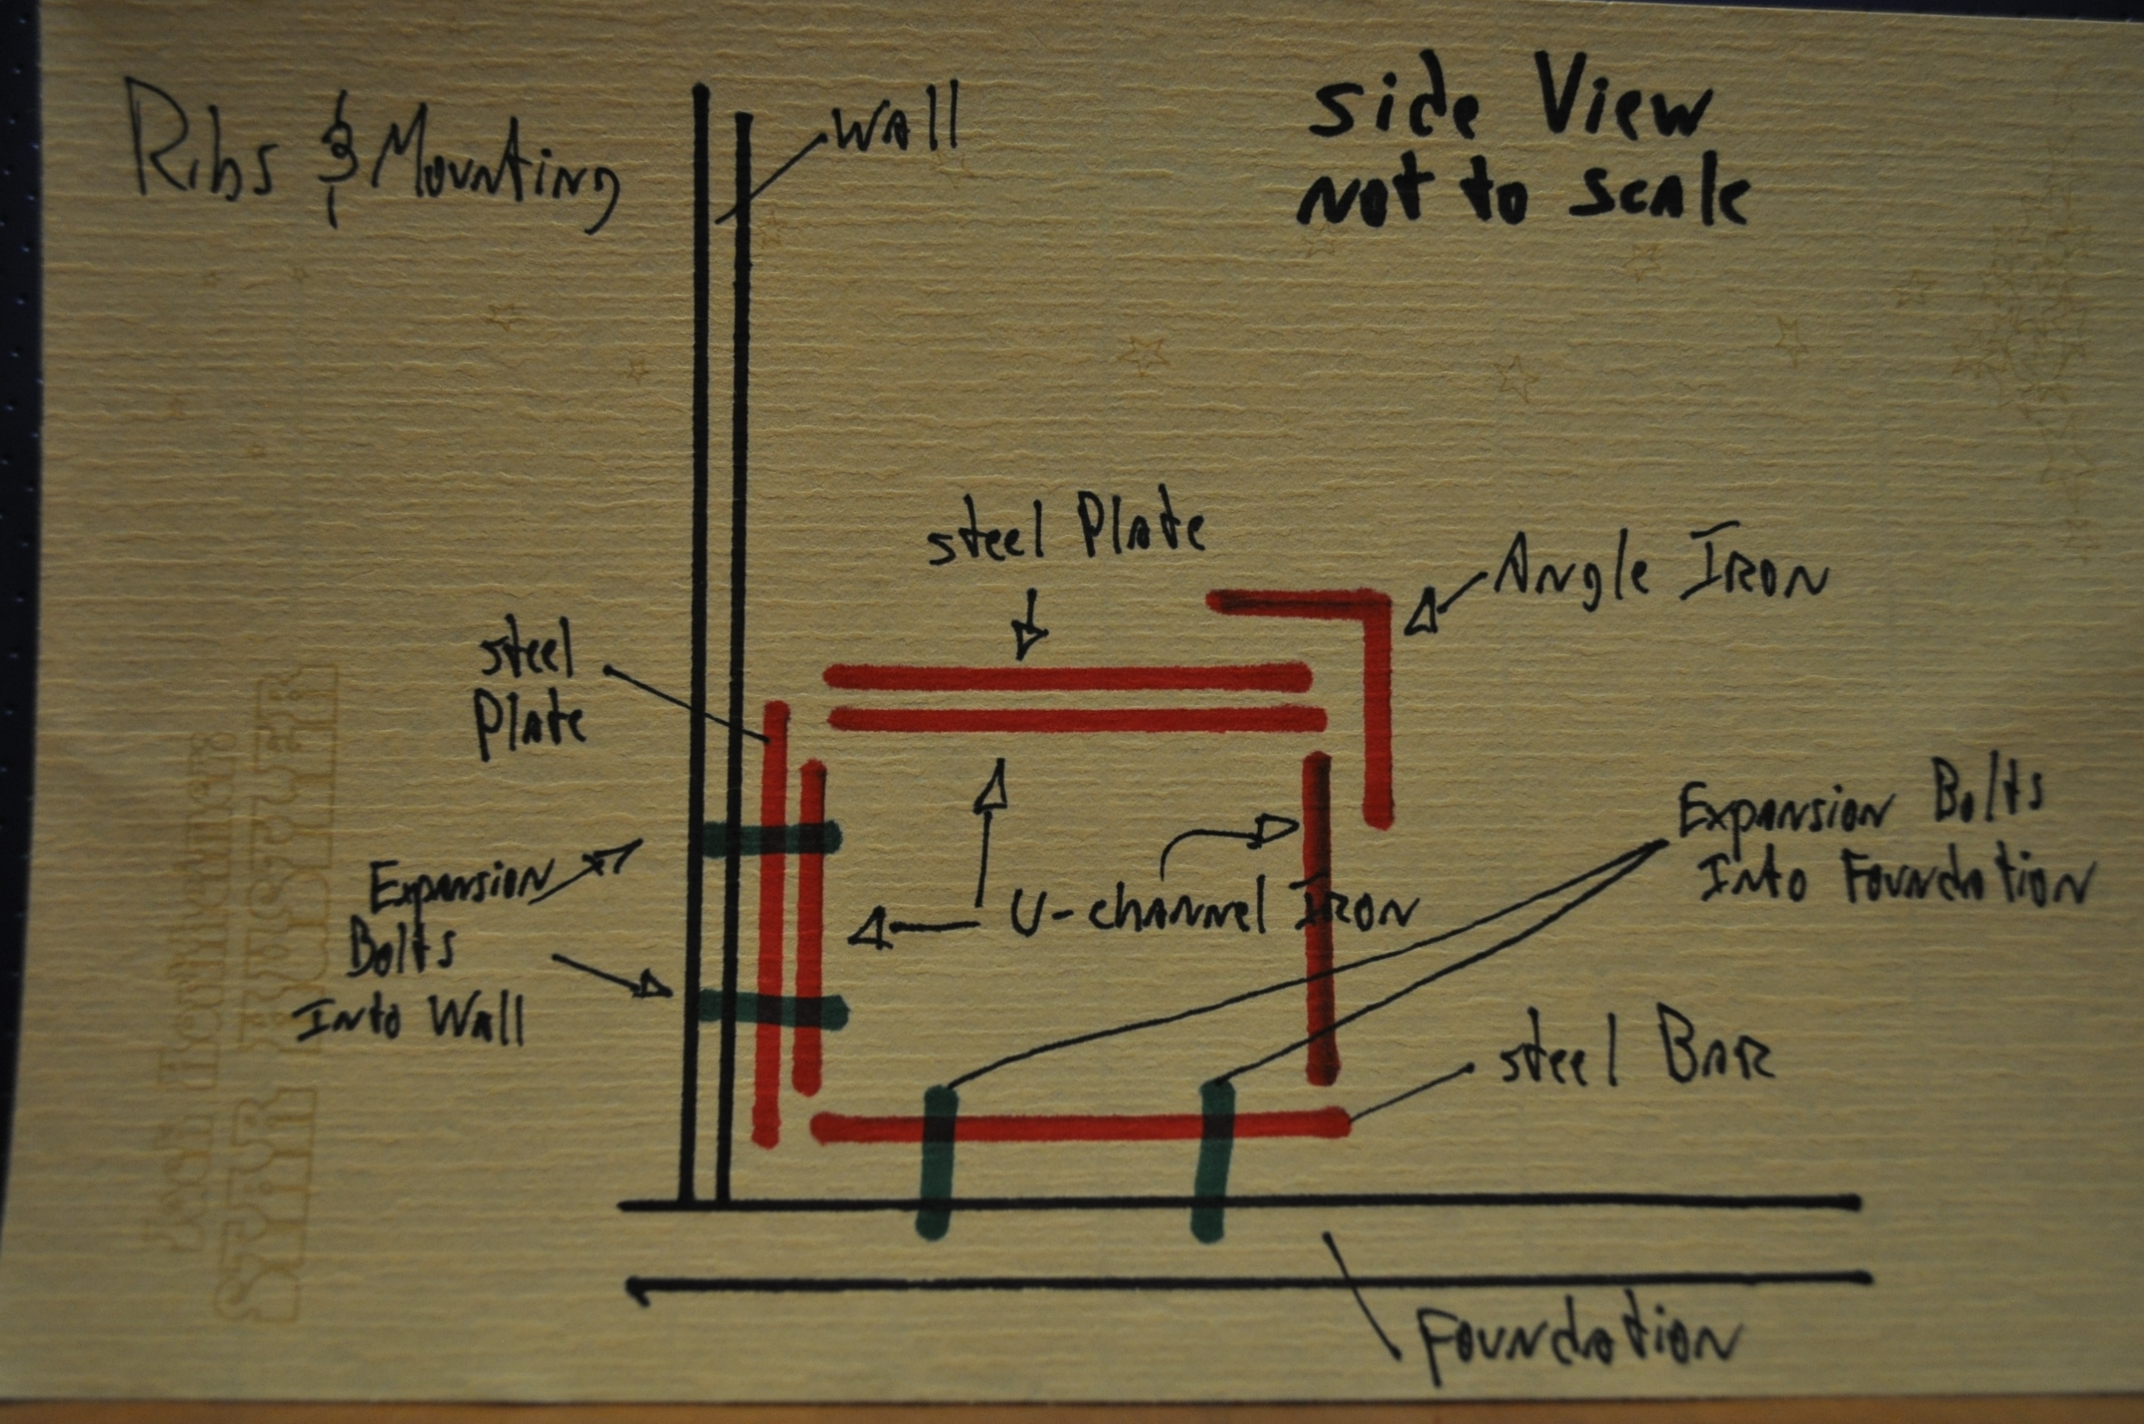 Ribs & Mounting
Wall
Side View
Not to Scale
Steel Plate
Angle Iron
Steel
Plate
Expansion Bolts
Into Foundation
Expansion
Bolts
Into Wall
U-channel Iron
Steel Bar
Foundation